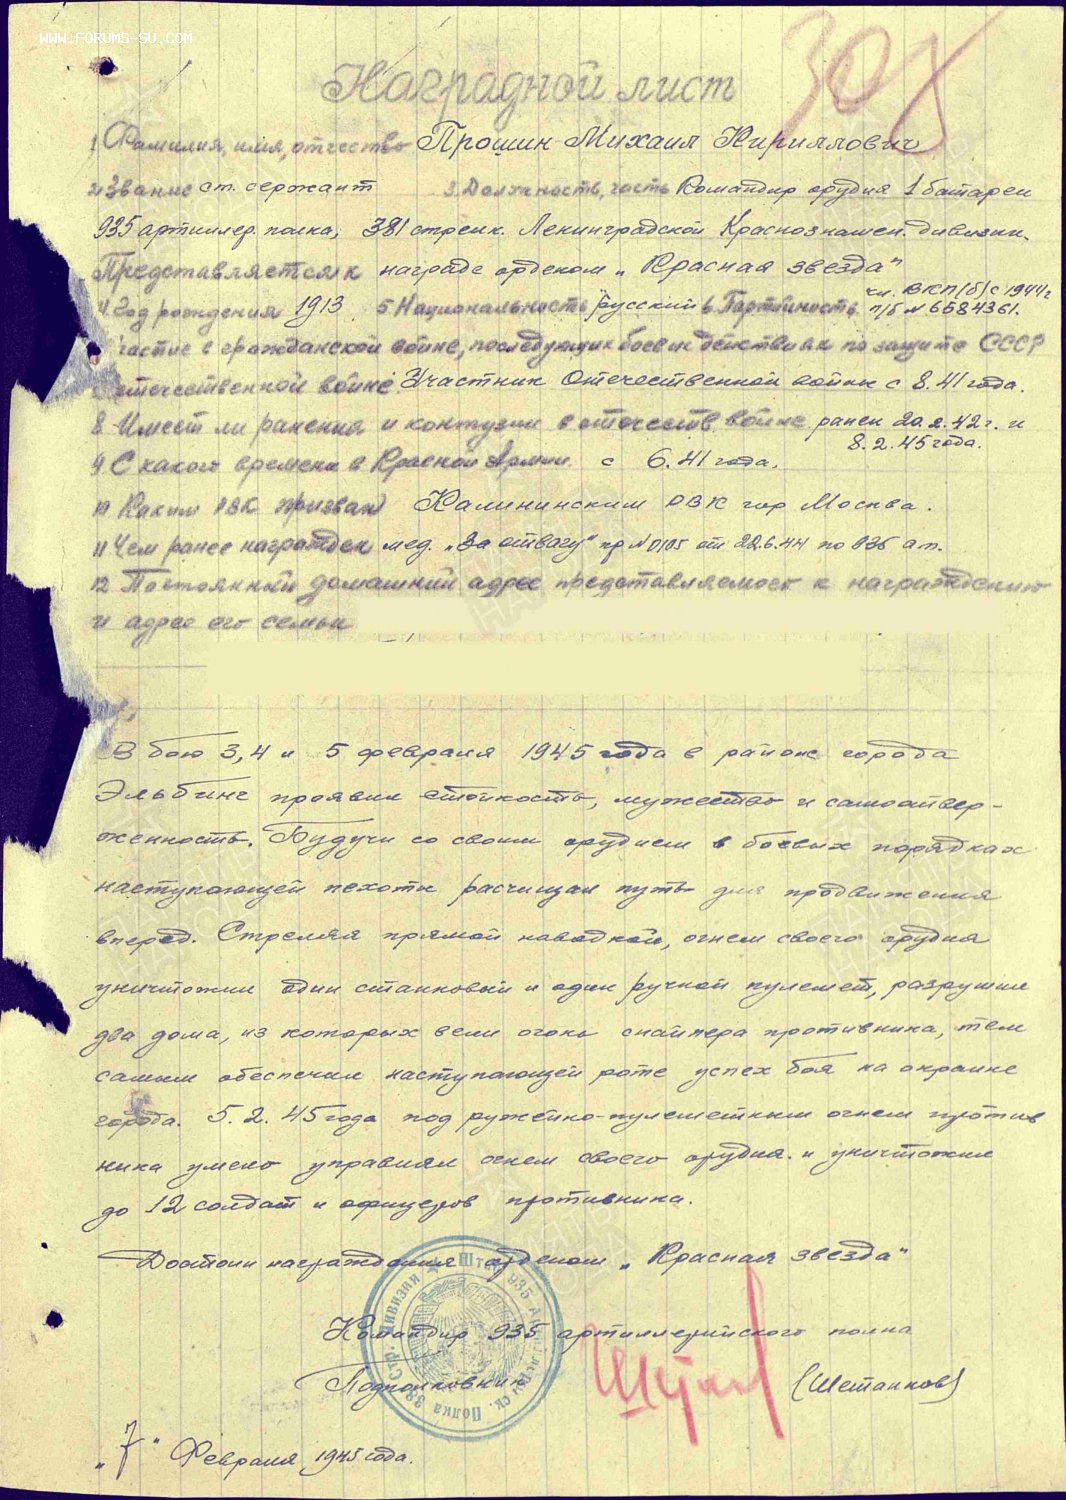 WWW.FORUMS-SU.COM
308
Наградной лист
1 Фамилия, имя, отчество Прошин Михаил Кириллович
2 Звание ст. сержант 3. Должность, часть Командир орудия 1 батареи
935 артиллер. полка, 381 стрелк. Ленинградской Краснознамен. дивизии.
Представляется к награде орденом „Красная звезда"
чл. ВКП(б) с 1944г
4 Год рождения 1913 5 Национальность русский 6 Партийность п/б № 6584361.
частие в гражданской войне, последующих боевых действиях по защите СССР
отечественной войне Участник Отечественной войны с 8.41 года.
8 Имеет ли ранения и контузии в отечеств войне ранен 20.2.42 г. и
8.2.45 года.
9 С какого времени в Красной Армии с 6.41 года.
10 Каким РВК призван Калининским РВК гор Москва.
11 Чем ранее награжден мед. „За отвагу" пр № 0105 от 22.6.44 по 935 ап.
12 Постоянный домашний адрес представляемого к награждению
и адрес его семьи
В бою 3,4 и 5 февраля 1945 года в районе города
Эльбинг проявил стойкость, мужество и самоотвер-
женность. Будучи со своим орудием в боевых порядках
наступающей пехоты расчищал путь для продвижения
вперед. Стреляя прямой наводкой, огнем своего орудия
уничтожил один станковый и один ручной пулемет, разрушил
два дома, из которых вели огонь снайпера противника, тем
самым обеспечил наступающей роте успех боя на окраине
города. 5.2.45 года под ружейно-пулеметным огнем против
ника умело управлял огнем своего орудия и уничтожил
до 12 солдат и офицеров противника.
Достоин награждения орденом „Красная звезда"
Командир 935 артиллерийского полка
Подполковник (Шетанков)
„7" Февраля 1945 года.